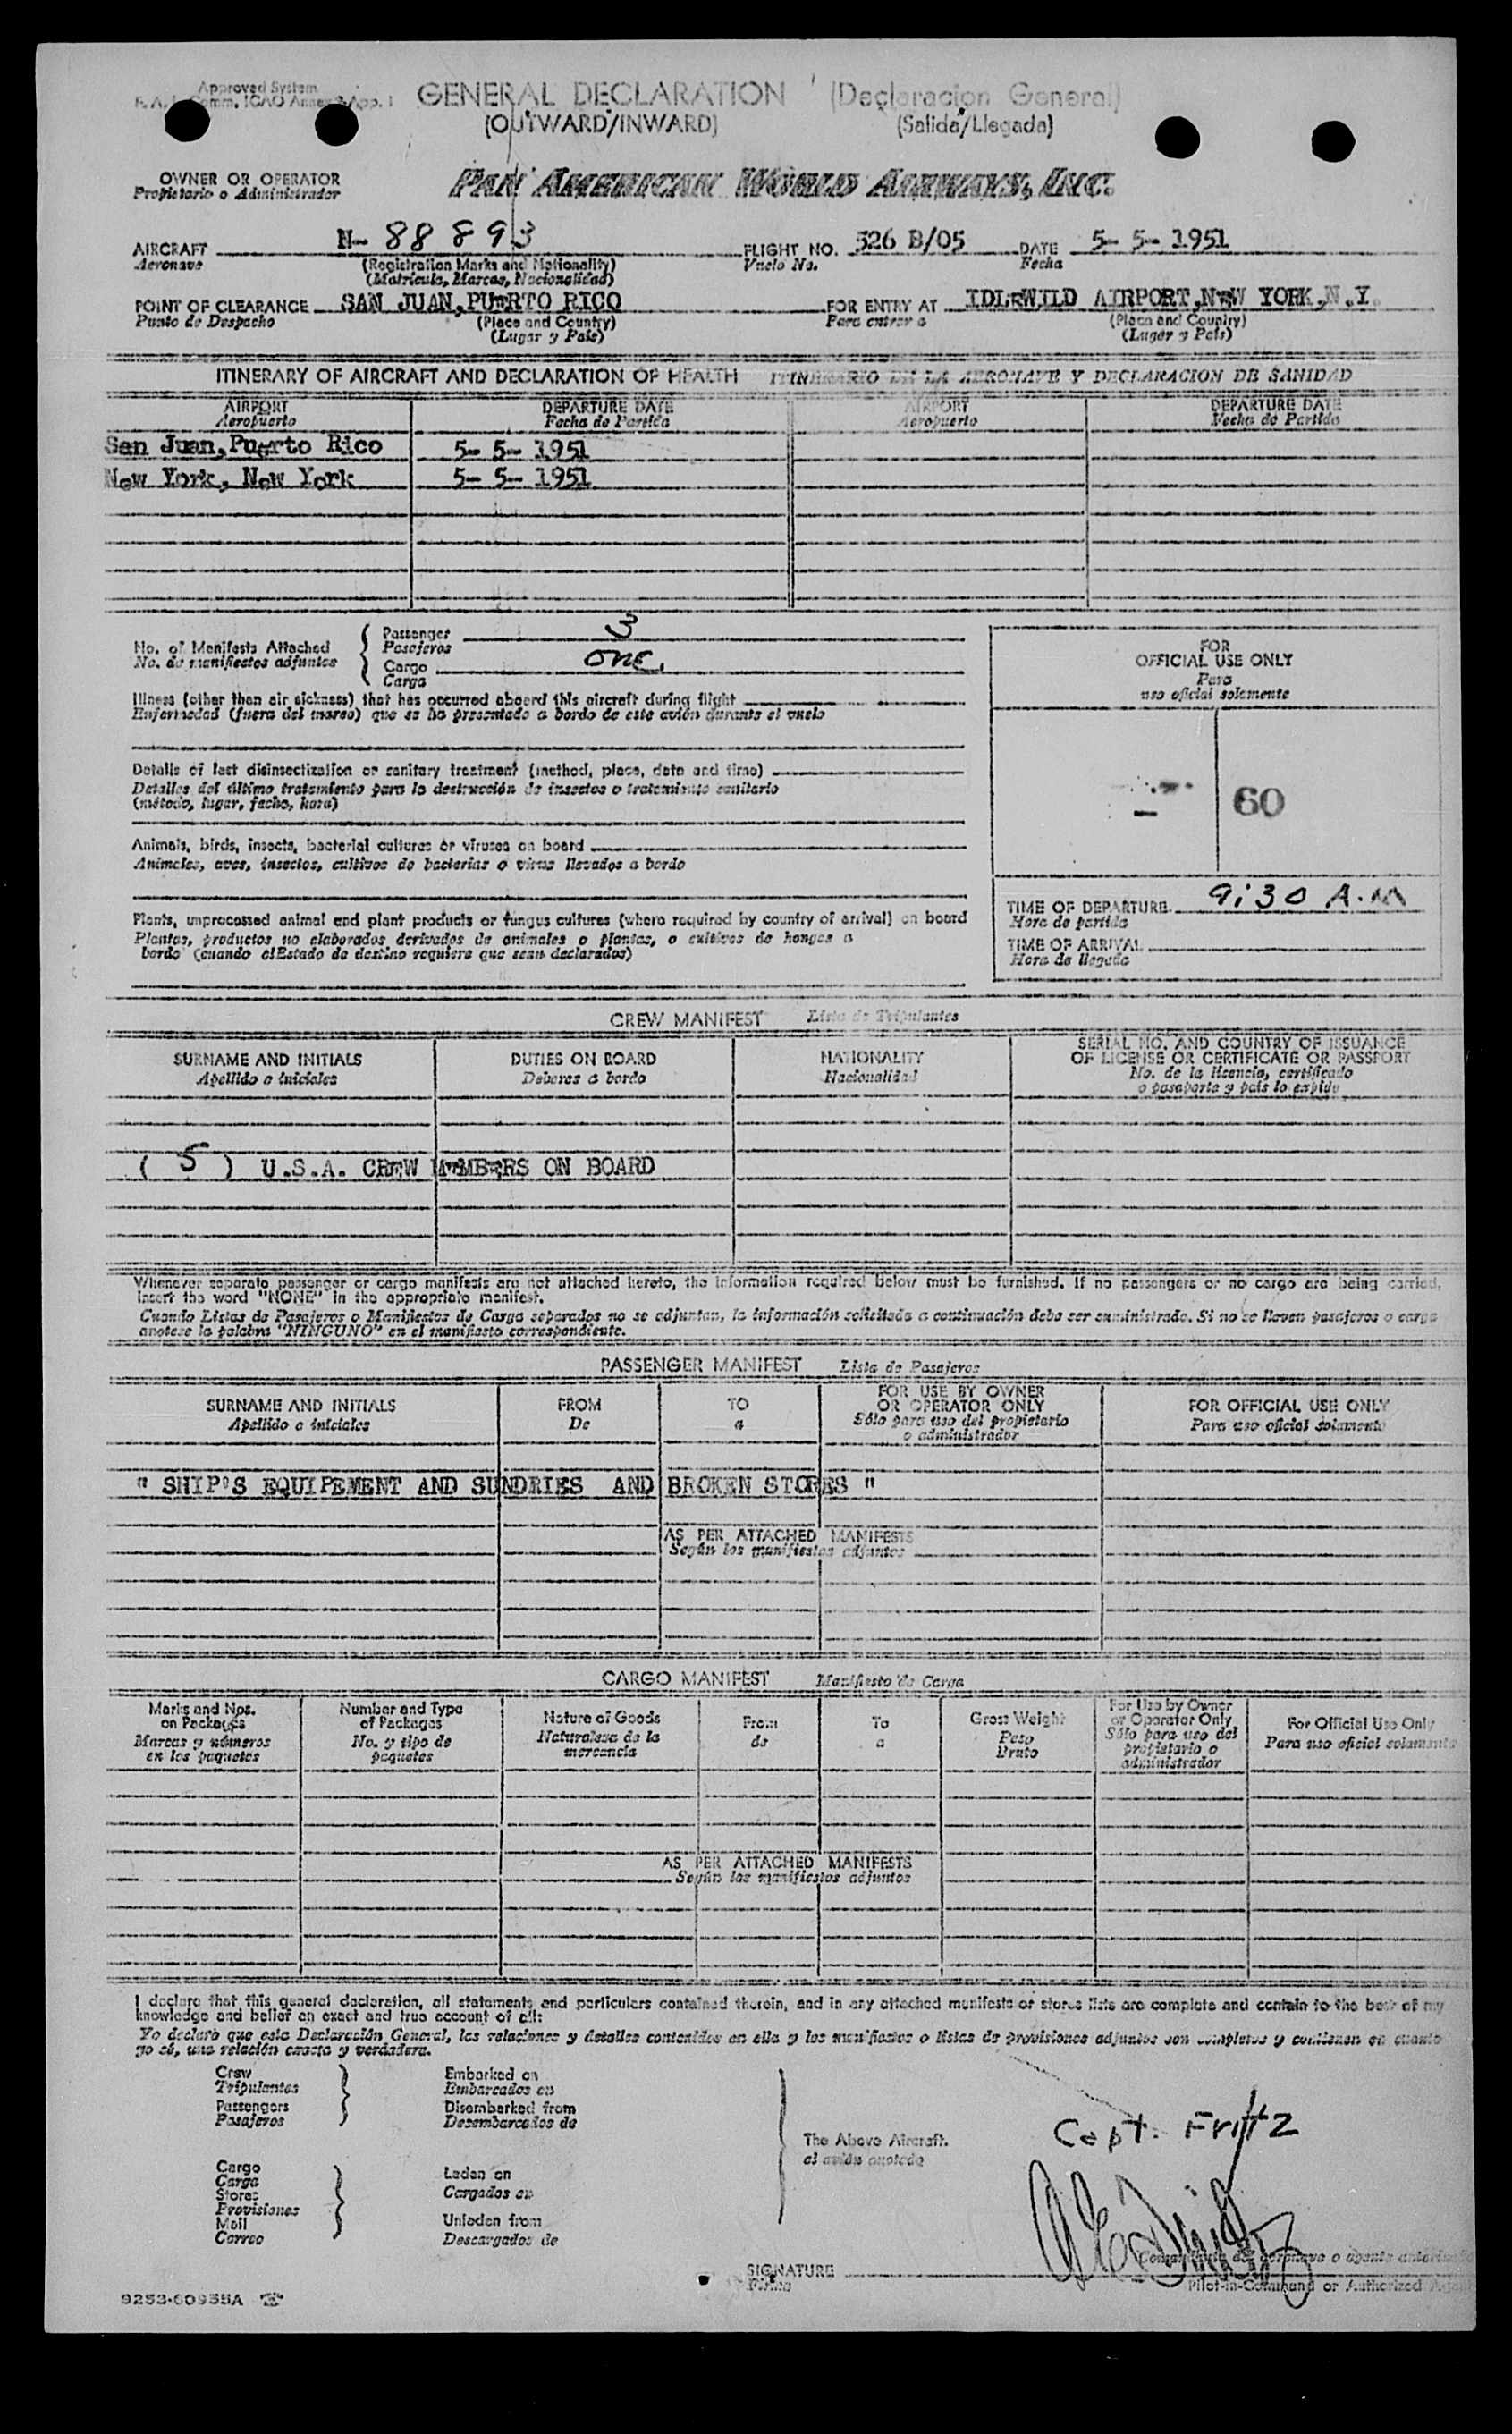 Approved System
F. A. L. Comm. ICAO Annex 9 App. 1
GENERAL DECLARATION (Declaracion General)
(OUTWARD/INWARD) (Salida/Llegada)
OWNER OR OPERATOR PAN AMERICAN WORLD AIRWAYS, INC.
Propietario o Administrador
AIRCRAFT N- 88893 FLIGHT NO. 526 B/05 DATE 5- 5- 1951
Aeronave (Registration Marks and Nationality) Vuelo No. Fecha
(Matricula, Marcas, Nacionalidad)
POINT OF CLEARANCE SAN JUAN, PUERTO RICO FOR ENTRY AT IDLEWILD AIRPORT, NEW YORK, N.Y.
Punto de Despacho (Place and Country) Para entrar a (Place and Country)
(Lugar y País) (Lugar y País)
ITINERARY OF AIRCRAFT AND DECLARATION OF HEALTH ITINERARIO DE LA AERONAVE Y DECLARACION DE SANIDAD
AIRPORT DEPARTURE DATE AIRPORT DEPARTURE DATE
Aeropuerto Fecha de Partida Aeropuerto Fecha de Partida
San Juan, Puerto Rico 5- 5- 1951
New York, New York 5- 5- 1951
No. of Manifests Attached { Passenger 3
No. de manifiestos adjuntos Pasajeros
Cargo one.
Carga
FOR
OFFICIAL USE ONLY
Para
uso oficial solamente
Illness (other than air sickness) that has occurred aboard this aircraft during flight
Enfermedad (fuera del mareo) que se ha presentado a bordo de este avión durante el vuelo
Details of last disinsectization or sanitary treatment (method, place, date and time)
Detalles del último tratamiento para la destrucción de insectos o tratamiento sanitario
(método, lugar, fecha, hora)
60
Animals, birds, insects, bacterial cultures or viruses on board
Animales, aves, insectos, cultivos de bacterias o virus llevados a bordo
TIME OF DEPARTURE 9:30 A.M
Hora de partida
TIME OF ARRIVAL
Hora de llegada
Plants, unprocessed animal and plant products or fungus cultures (where required by country of arrival) on board
Plantas, productos no elaborados derivados de animales o plantas, o cultivos de hongos a
bordo (cuando el Estado de destino requiera que sean declarados)
CREW MANIFEST Lista de Tripulantes
SURNAME AND INITIALS DUTIES ON BOARD NATIONALITY SERIAL NO. AND COUNTRY OF ISSUANCE
OF LICENSE OR CERTIFICATE OR PASSPORT
Apellido e iniciales Deberes a bordo Nacionalidad No. de la licencia, certificado
o pasaporte y país lo expide
( 5 ) U.S.A. CREW MEMBERS ON BOARD
Whenever separate passenger or cargo manifests are not attached hereto, the information required below must be furnished. If no passengers or no cargo are being carried,
insert the word "NONE" in the appropriate manifest.
Cuando Listas de Pasajeros o Manifiestos de Carga separados no se adjuntan, la información solicitada a continuación debe ser suministrada. Si no se llevan pasajeros o carga
anotese la palabra "NINGUNO" en el manifiesto correspondiente.
PASSENGER MANIFEST Lista de Pasajeros
SURNAME AND INITIALS FROM TO FOR USE BY OWNER FOR OFFICIAL USE ONLY
OR OPERATOR ONLY
Apellido e iniciales De a Sólo para uso del propietario Para uso oficial solamente
o administrador
" SHIP'S EQUIPEMENT AND SUNDRIES AND BROKEN STORES "
AS PER ATTACHED MANIFESTS
Según los manifiestos adjuntos
CARGO MANIFEST Manifiesto de Carga
Marks and Nos.
on Packages
Marcas y números
en los paquetes
Number and Type
of Packages
No. y tipo de
paquetes
Nature of Goods
Naturaleza de la
mercancía
From
de
To
a
Gross Weight
Peso
Bruto
For Use by Owner
or Operator Only
Sólo para uso del
propietario o
administrador
For Official Use Only
Para uso oficial solamente
AS PER ATTACHED MANIFESTS
Según los manifiestos adjuntos
I declare that this general declaration, all statements and particulars contained therein, and in any attached manifests or stores lists are complete and contain to the best of my
knowledge and belief an exact and true account of all:
Yo declaro que esta Declaración General, las relaciones y detalles contenidos en ella y los manifiestos o listas de provisiones adjuntos son completos y contienen en cuanto
yo sé, una relación exacta y verdadera.
Crew Embarked on
Tripulantes Embarcados en
Passengers Disembarked from
Pasajeros Desembarcados de
The Above Aircraft.
al avión anotado
Capt. Fritz
Cargo Laden on
Carga Cargados en
Stores
Provisiones
Mail Unladen from
Correo Descargados de
SIGNATURE
Firma
Comandante del aeronave o agente
Pilot-in-Command or Authorized Agent
9253-60935A